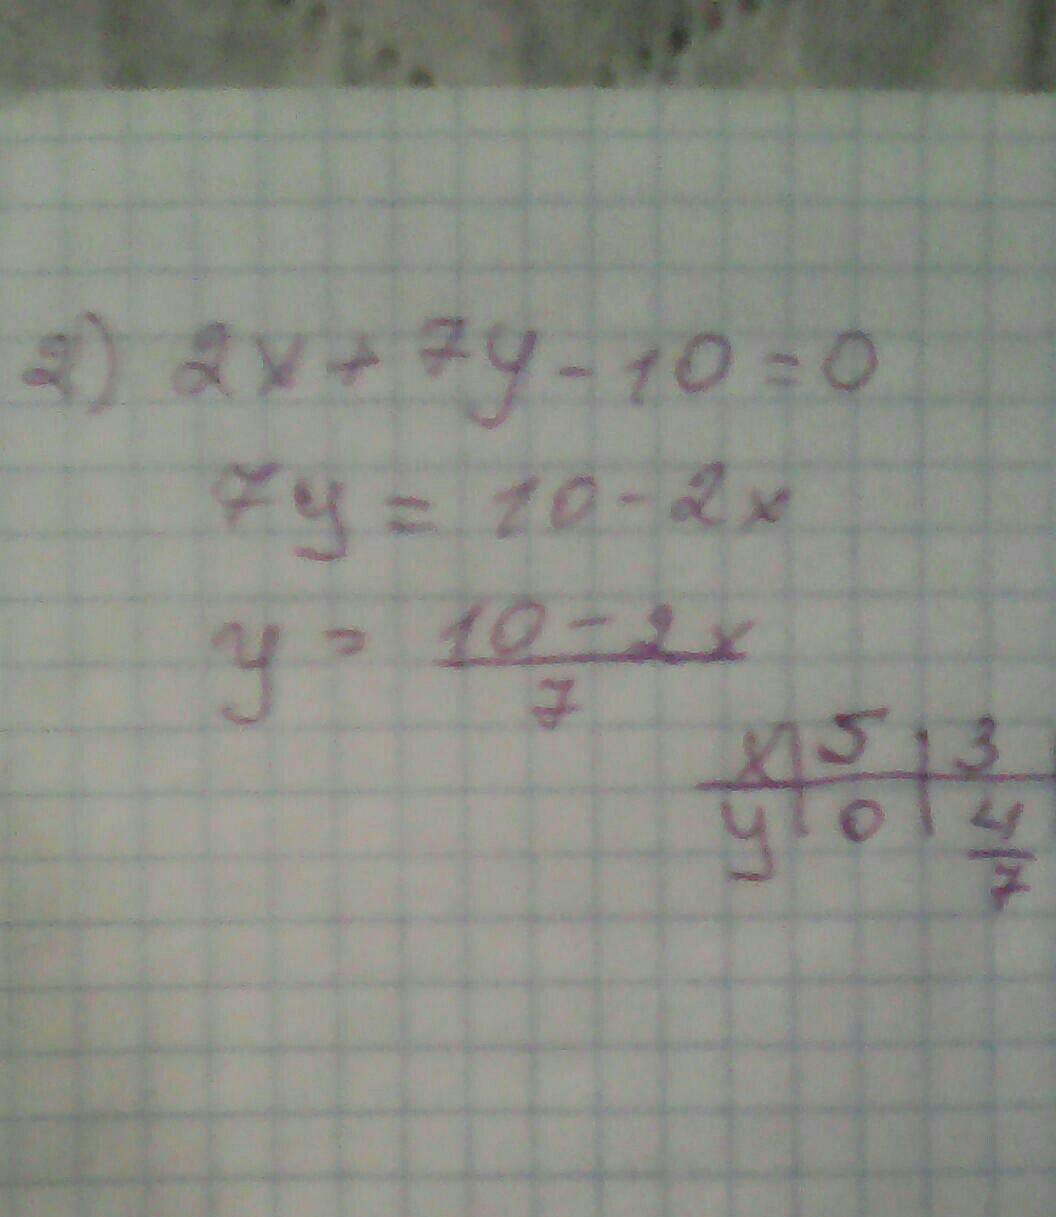 2) 2x + 7y - 10 = 0
7y = 10 - 2x
y = \frac{10 - 2x}{7}
x | 5 | 3
y | 0 | \frac{4}{7}